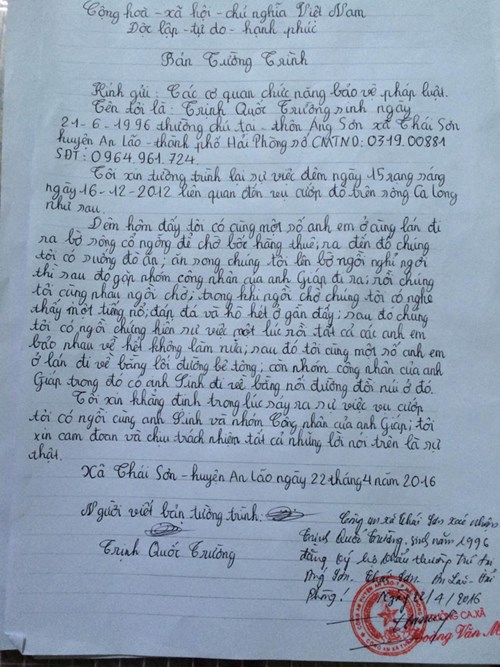 Cộng hoà - xã hội - chủ nghĩa Việt Nam
Độc lập - tự do - hạnh phúc
Bản Tường Trình
Kính gửi: Các cơ quan chức năng bảo vệ pháp luật.
Tên tôi là: Trịnh Quốc Trường sinh ngày
21-6-1996 thường chú tại - thôn Áng Sơn xã Thái Sơn
huyện An Lão - thành phố Hải Phòng số CMTND: 0319.00881
SĐT: 0964.961.724.
Tôi xin tường trình lại sự việc đêm ngày 15 rạng sáng
ngày 16-12-2012 liên quan đến vụ cướp đò trên sông Ca Long
như sau.
Đêm hôm đấy tôi có cùng một số anh em ở cùng lán đi
ra bờ sông cô ngóng để chờ bốc hàng thuê; ra đến đó chúng
tôi có xuống đò ăn; ăn song chúng tôi lên bờ ngồi nghỉ ngơi
thì sau đó gặp nhóm công nhân của anh Giáp đi ra; rồi chúng
tôi cùng nhau ngồi chờ; trong khi ngồi chờ chúng tôi có nghe
thấy một tiếng nổ; đạn đá và hò hét ở gần đấy; sau đó chúng
tôi có ngồi chứng kiến sự việc một lúc rồi tất cả các anh em
bảo nhau về hết không làm nữa; sau đó tôi cùng một số anh em
ở lán đi về bằng lối đường bê tông; còn nhóm công nhân của anh
Giáp trong đó có anh Sinh đi về bằng nối đường đồi núi ở đó.
Tôi xin khẳng định trong lúc sảy ra sự việc vụ cướp
tôi có ngồi cùng anh Sinh và nhóm Công nhân của anh Giáp; tôi
xin cam đoan và chịu trách nhiệm tất cả những lời nói trên là sự
thật.
Xã Thái Sơn - huyện An Lão ngày 22 tháng 4 năm 2016
Người viết bản tường trình.
Trịnh Quốc Trường
Công an xã Thái Sơn xác nhận
Trịnh Quốc Trường, sinh năm 1996
đăng ký hộ khẩu thường trú tại
Áng Sơn, Thái Sơn, An Lão - Hải
Phòng! Ngày 22/4/2016
CA XÃ
Hoàng Văn